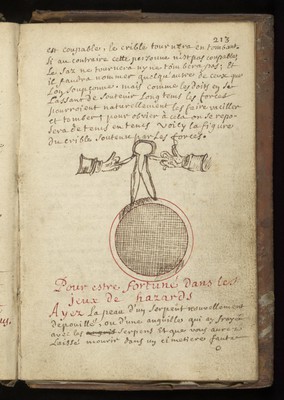 213
est coupable, le crible tournera en tombant.
si au contraire cette personne n'est pas coupable,
Le saz ne tournera ny ne tombera pas; et
il faudra nommer quelqu'autres de ceux que
Lon soupçonne, mais comme les doits en se
Lassant de soutenir long tems les forces
pourroient naturellement les faire vaciller
et tomber; pour obvier à cela on se repo-
sera de tems en tems voicy la figure
du crible soutenu par Les forces.
Pour estre fortuné dans les
Jeux de hazards
Ayez La peau d'un serpent nouvellement
dépouillé, ou d'une anguille qui ay frayé
avec les serpent et que vous aurez
Laissé mourir dans un cimetiere faute